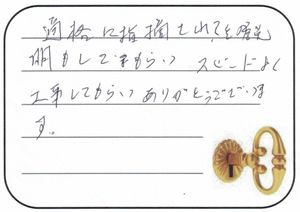 適格に指摘されて
明もしてもらい スピードよく
工事してもらい ありがとうございま
す。